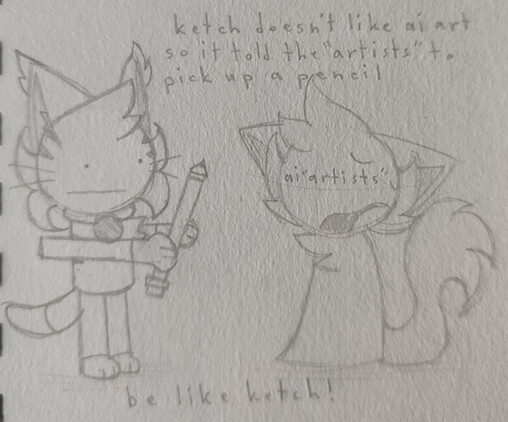 ketch doesn't like ai art
so it told the "artists" to
pick up a pencil
ai "artists"
be like ketch!